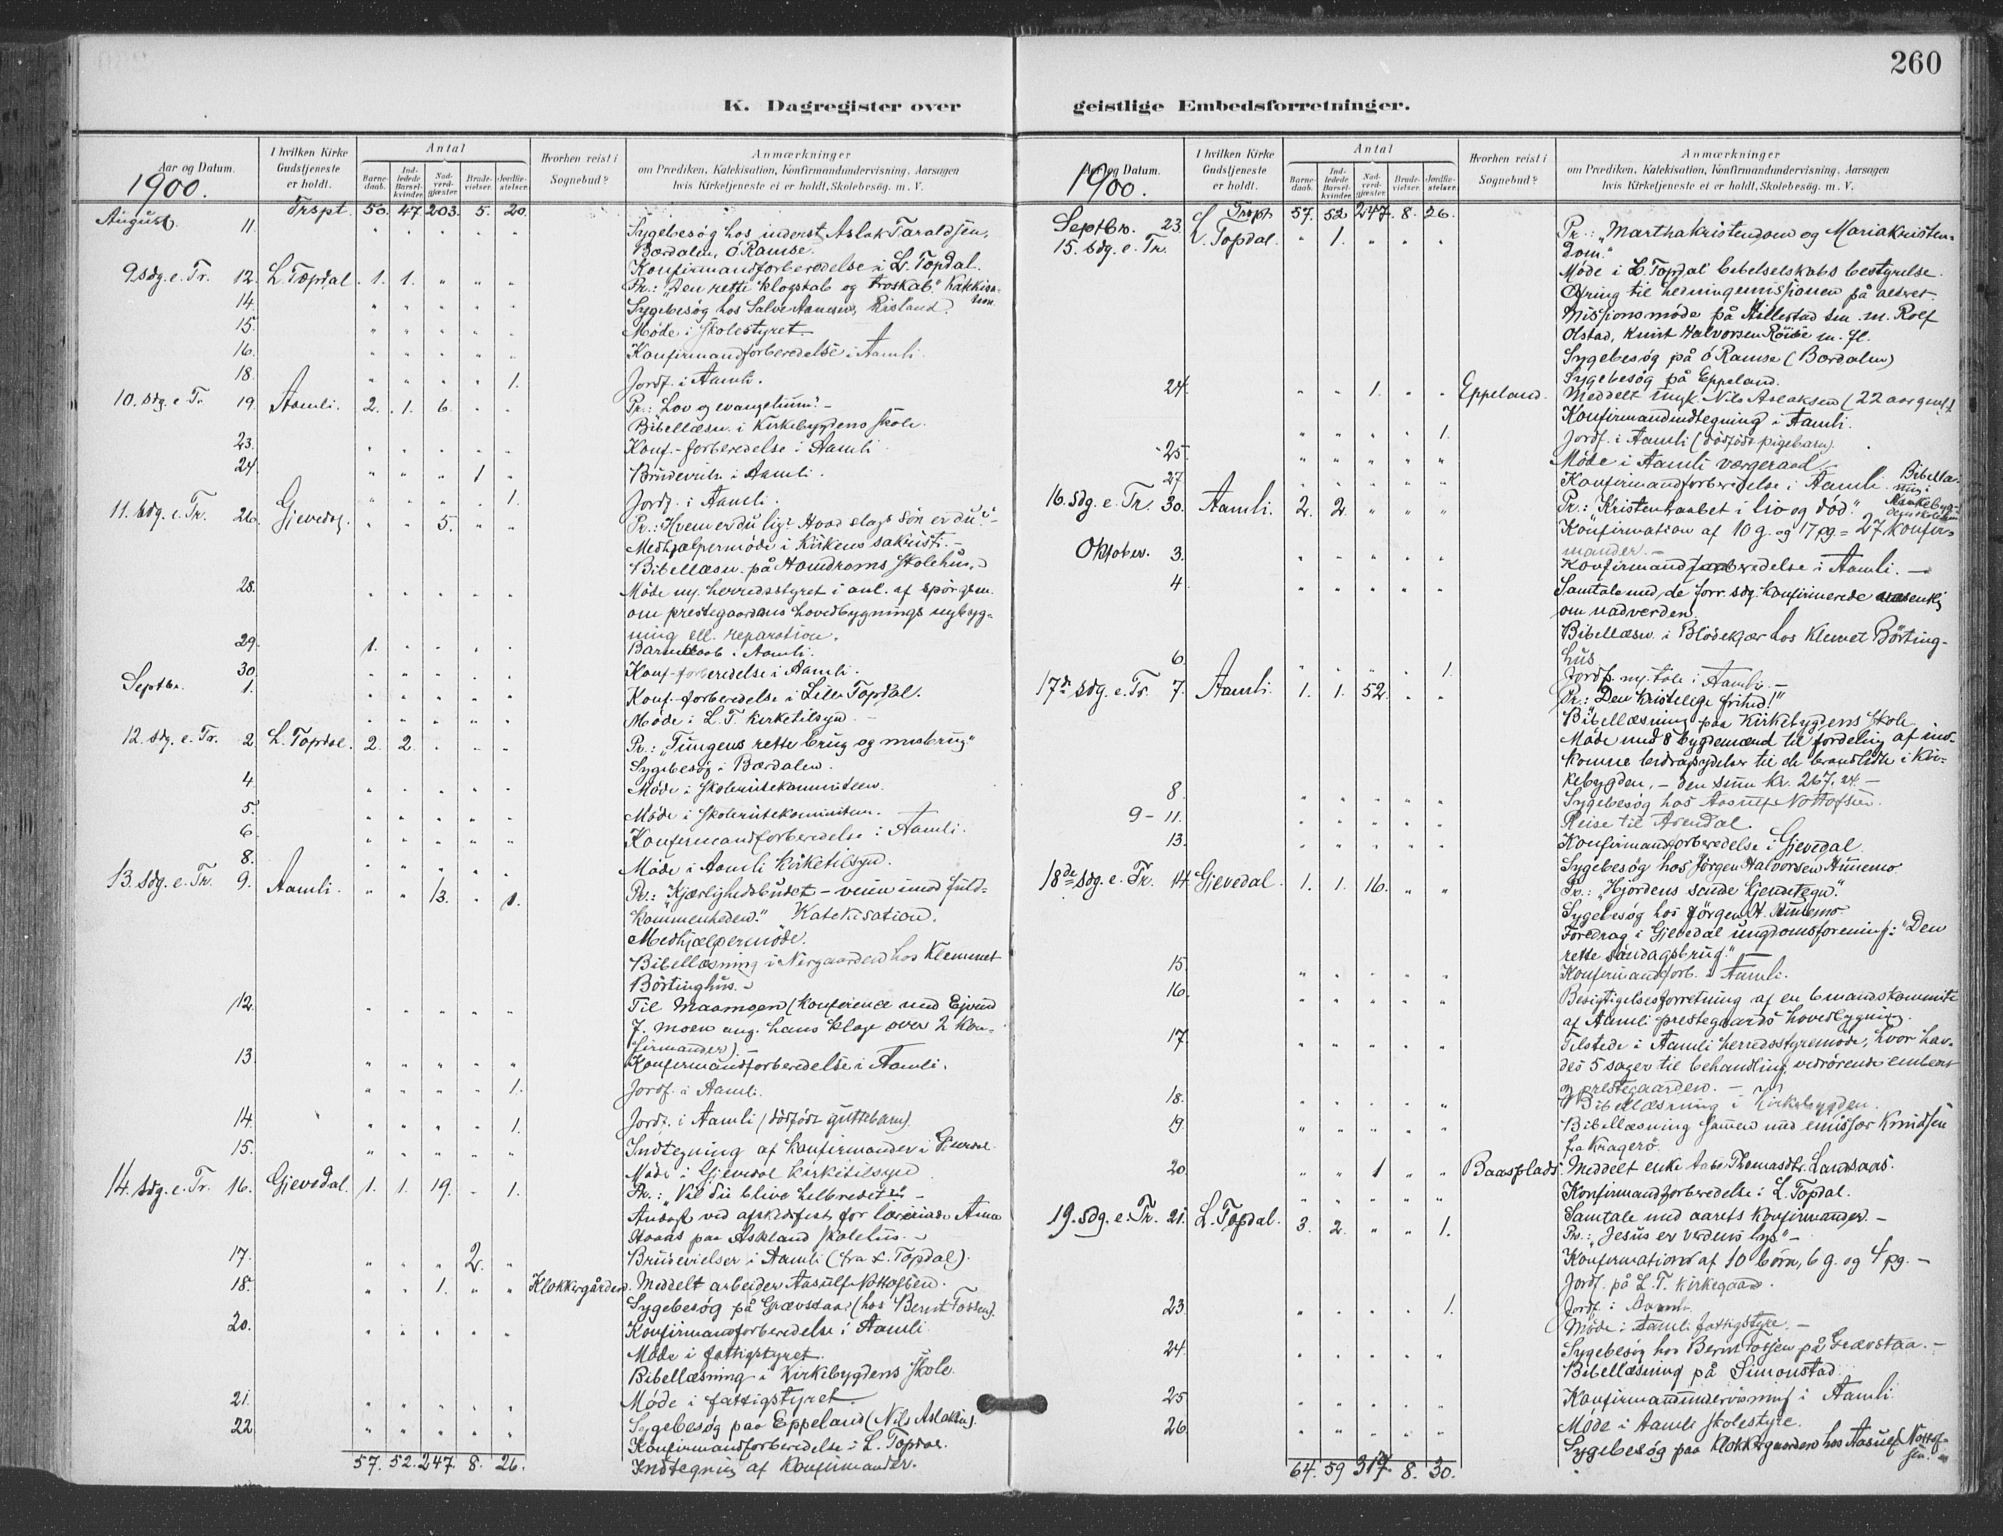 260
K. Dagregister over
geistlige Embedsforretninger.
Aar og Datum.
1900.
I hvilken Kirke Gudstjeneste er holdt.
Antal
Barnedaab.
Indledede Barselkvinder.
Nadverdgjæster.
Brudevielser.
Jordfæstelser.
Hvorhen reist i Sognebud?
Anmærkninger
om Prædiken, Katekisation, Konfirmandundervisning, Aarsagen
hvis Kirketjeneste ei er holdt, Skolebesøg. m. V.
Trspt. 50. 47. 203. 5. 20.
August 11. Sygebesøg hos inderst Aslak Taraldsen,
Bærdalen, ö Ramse.
Konfirmandforberedelse i L. Topdal.
9. sdg. e. Tr. 12. L. Topdal 1. 1. Pr.: "Den rette klogskab og troskab." Katekisation
14. Sygebesøg hos Salve Aanesen, Risland.
15. Møde i skolestyret.
16. Konfirmandforberedelse i Aamli.
18. 1. Jordf. i Aamli.
10. sdg. e. Tr. 19. Aamli. 2. 1. 6. Pr.: Lov og evangelium." -
Bibellæsn. i Kirkebygdens skole.
23. Konf.-forberedelse i Aamli
24. 1 Brudevielse i Aamli.
1. Jordf. i Aamli.
11. sdg. e. Tr. 26. Gjevedal 5. Pr.: Hvem er du lig? Hvad slags søn er du?" -
Medhjælpermøde i Kirkens sakristi. -
Bibellæsn. på Homdroms skolehus.
28. Møde m. herredsstyret i anl. af spørgsm.
om prestegaardens hovedbygnings nybyg-
ning ell. reparation.
29. 1. Barnedaab i Aamli.
30. Konf.-forberedelse i Aamli.
Septbr. 1. Konf.-forberedelse i Lille Topdal.
Møde i L. T. kirketilsyn. -
12. sdg. e. Tr. 2. L. Topdal. 2. 2. Pr.: "Tungens rette brug og misbrug"
Sygebesøg i Bærdalen.
4. Møde i skolerutekommiteen.
5. Møde i skolerutekommiteen.
6. Konfirmandforberedelse i Aamli.
8. Møde i Aamli kirketilsyn.
13. sdg. e. Tr. 9. Aamli. 13. 1. Pr.: "Kjærlighedsbudet - veien imod fuld-
kommenheden." Katekisation.
Medhjælpermøde.
Bibellæsning i Nergaarden hos Klemmet
Börtinghus. -
12. Til Maamoen (konference med Ejvind
J. Moen ang. hans klage over 2 kon-
firmander). -
13. Konfirmandforberedelse i Aamli.
1. Jordf. i Aamli.
14. 1. Jordf. i Aamli (dødfødt guttebarn).
15. Indtegning af konfirmander i Gjevedal.
Møde i Gjevedal kirketilsyn
14. sdg. e. Tr. 16. Gjevedal. 1. 1. 19. 1. Pr.: "Vil du blive helbredet?" -
Andagt ved afskedsfest for lærerinde Anna
Haaas paa Askland skolehus. -
17. 2. Brudevielser i Aamli (fra L. Topdal).
18. 1. Klokkergården. Meddelt arbeider Aasulf Nottofsen.
Sygebesøg på Grævstaa (hos Bernt Tossen).
20. Konfirmandforberedelse i Aamli.
Møde i fattigstyret.
Bibellæsning i Kirkebygdens skole.
21. Møde i fattigstyret.
22. Sygebesøg paa Eppeland (Nils Aslaksen).
Konfirmandforberedelse i L. Topdal.
57. 52. 247. 8. 26. Indtegning af konfirmander.
Aar og Datum.
1900.
I hvilken Kirke Gudstjeneste er holdt.
Antal
Barnedaab.
Indledede Barselkvinder.
Nadverdgjæster.
Brudevielser.
Jordfæstelser.
Hvorhen reist i Sognebud?
Anmærkninger
om Prædiken, Katekisation, Konfirmandundervisning, Aarsagen
hvis Kirketjeneste et er holdt, Skolebesøg. m. V.
Trspt 57. 52 247. 8. 26.
Septbr. 23. L. Topdal. 1. Pr.: "Marthakristendom og Mariakristen-
15. sdg. e. Tr. dom."
Møde i L. Topdal bibelselskabs bestyrelse.
Ofring til hedningemissionen på alteret.
Missionsmøde på Hillestad sm. m. Rolf
Olstad, Knut Halvorsen m. fl.
Sygebesøg på ö Ramse (Bærdalen)
Sygebesøg på Eppeland.
24. 1. Eppeland. Meddelt ungk. Nils Aslaksen (22 aar gml.)
Konfirmandindtegning i Aamli.
1. Jordf. i Aamli (dødfødt pigebarn).
25. Møde i Aamli værgeraad
27. Konfirmandforberedelse i Aamli. Bibellæs-
ning i Kirkebyg-
dens skolehus
16. sdg. e. Tr. 30. Aamli. 2. 2. Pr.: "Kristenhaabet i liv og död."
Konfirmation af 10 g. og 17 pg. = 27 konfir-
mander. -
Oktober. 3. Konfirmandforberedelse i Aamli. -
4. Samtale med de forr. sdg. konfirmerede
om nadverden
Bibellæsn. i Blødekjær hos Klemet Börting-
hus
6. 1. Jordf. m. tale i Aamli. -
17de sdg. e. Tr. 7. Aamli. 1. 1. 52. Pr.: "Den kristelige frihed!"
Bibellæsning paa Kirkebygdens skole
Møde med 8 bygdemænd til fordeling af ind-
komne bidragsydelser til de brandlidte i Kir-
kebygden, - den sum kr. 267,24 -
8. Sygebesøg hos Aasulf Nottofsen.
9 - 11. Reise til Arendal.
13. Konfirmandforberedelse i Gjevedal.
Sygebesøg hos Jørgen Halvorsen Hunemo.
18de sdg. e. Tr. 14. Gjevedal. 1. 1. 16. Pr.: "Hjordens sande kjendetegn."
Sygebesøg hos Jørgen H. Hunemo.
Foredrag i Gjevedal ungdomsforening: "Den
rette søndagsbrug." -
15. Konfirmandforb. i Aamli.
16. Besigtigelsesforretning af en 6 mandskommite
af Aamli prestegaards hovedbygning.
17. Tilstede i Aamli herredsstyremøde, hvor hav-
des 5 sager til behandling vedrørende embedet
og prestegaarden. -
18. Bibellæsning i Kirkebygden.
19. Bibellæsning sammen med emissær Knudsen
fra Kragerö.
20. 1 Baasplads. Meddelt enke Aabo Thomasdtr. Landsaas.
Konfirmandforberedelse i L. Topdal.
Samtale med aarets konfirmander. -
19. sdg. e. Tr. 21. L. Topdal. 3. 2. 1. Pr.: "Jesus er verdens lys" -
Konfirmation af 10 börn, 6 g. og 4 pg. -
Jordf. på L. T. kirkegaard.
23. 1. Jordf. i Aamli.
Møde i Aamli fattigstyre. -
24. Sygebesøg hos Bernt Tossen på Grævstaa. -
Bibellæsning på Simonstad.
25 Konfirmandundervisning i Aamli.
26. Møde i Aamli skolestyre.
Sygebesøg paa klokkergaarden hos Aasulf Nottof-
sen. -
64. 59 317. 8. 30.